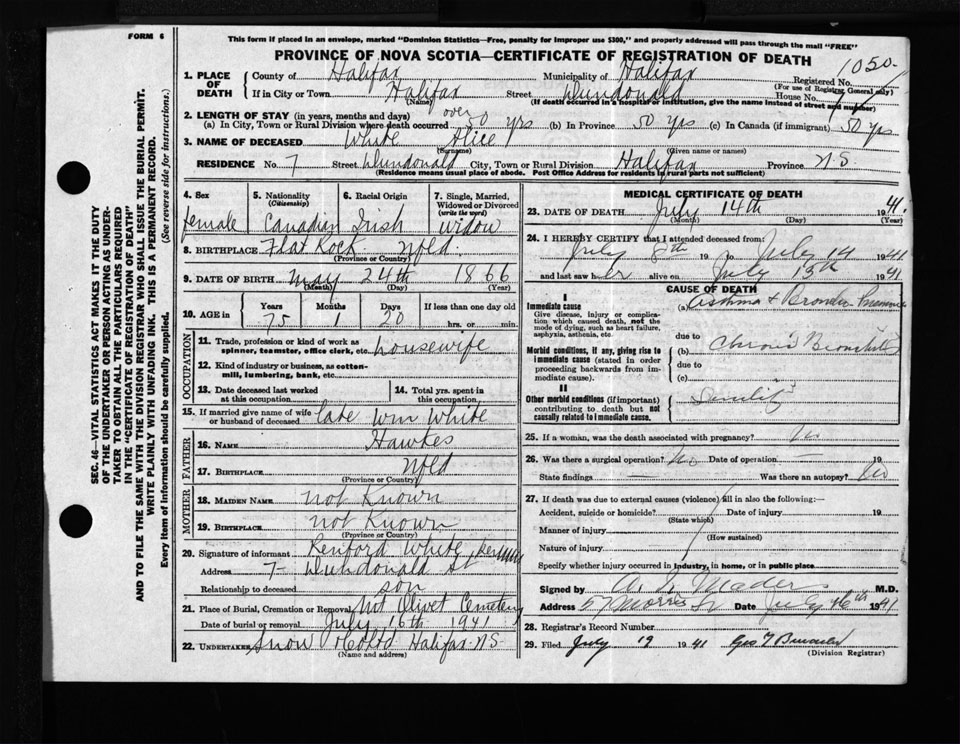 FORM 6
This form if placed in an envelope, marked "Dominion Statistics—Free, penalty for improper use $300," and properly addressed will pass through the mail "FREE"
PROVINCE OF NOVA SCOTIA—CERTIFICATE OF REGISTRATION OF DEATH
1050.
1. PLACE OF DEATH County of Halifax Municipality of Halifax Registered No.
(For use of Registrar General only)
If in City or Town Halifax Street Dundonald House No. 7
(Name) (If death occurred in a hospital or institution, give the name instead of street and number)
2. LENGTH OF STAY (in years, months and days)
(a) In City, Town or Rural Division where death occurred over 50 yrs (b) In Province 50 yrs (c) In Canada (if immigrant) 50 yrs
3. NAME OF DECEASED White Alice
(Surname) (Given name or names)
RESIDENCE No. 7 Street Dundonald City, Town or Rural Division Halifax Province N.S.
(Residence means usual place of abode. Post Office Address for residents in rural parts not sufficient)
4. Sex female
5. Nationality (Citizenship) Canadian
6. Racial Origin Irish
7. Single, Married, Widowed or Divorced (write the word) widow
8. BIRTHPLACE Flat Rock Nfld.
(Province or Country)
9. DATE OF BIRTH May 24th 1866
(Month) (Day) (Year)
10. AGE in Years 75 Months 1 Days 20 If less than one day old
hrs. or min.
OCCUPATION
11. Trade, profession or kind of work as spinner, teamster, office clerk, etc. housewife
12. Kind of industry or business, as cotton-mill, lumbering, bank, etc.
13. Date deceased last worked at this occupation
14. Total yrs. spent in this occupation
15. If married give name of wife or husband of deceased late Wm White
FATHER
16. NAME Hawkes
17. BIRTHPLACE Nfld
(Province or Country)
MOTHER
18. MAIDEN NAME not Known
19. BIRTHPLACE not Known
(Province or Country)
20. Signature of informant Renford White
Address 7- Dundonald St
Relationship to deceased son
21. Place of Burial, Cremation or Removal Mt Olivet Cemetery
Date of burial or removal July 16th 1941
22. UNDERTAKER Snow & Co Ltd Halifax N.S.
(Name and address)
MEDICAL CERTIFICATE OF DEATH
23. DATE OF DEATH July 14th 1941.
(Month) (Day) (Year)
24. I HEREBY CERTIFY that I attended deceased from:
July 8th 19 to July 14 1941
and last saw her alive on July 13th 1941
CAUSE OF DEATH
I
Immediate cause
Give disease, injury or complication which caused death, not the mode of dying, such as heart failure, asphyxia, asthenia, etc.
(a) Asthma & Broncho Pneumonia
due to
Morbid conditions, if any, giving rise to immediate cause (stated in order proceeding backwards from immediate cause).
(b) Chronic Bronchitis
due to
(c)
II
Other morbid conditions (if important) contributing to death but not causally related to immediate cause.
Senility
25. If a woman, was the death associated with pregnancy?
26. Was there a surgical operation? No Date of operation — 19
State findings — Was there an autopsy? No
27. If death was due to external causes (violence) fill in also the following:—
Accident, suicide or homicide? Date of injury 19
(State which)
Manner of injury
(How sustained)
Nature of injury
Specify whether injury occurred in industry, in home, or in public place
Signed by A. Mader M.D.
Address 57 Morris St Date July 16th 1941
28. Registrar's Record Number
29. Filed July 19 1941 Geo
(Division Registrar)
SEC. 46—VITAL STATISTICS ACT MAKES IT THE DUTY
OF THE UNDERTAKER OR PERSON ACTING AS UNDER-
TAKER TO OBTAIN ALL THE PARTICULARS REQUIRED
IN THE "CERTIFICATE OF REGISTRATION OF DEATH"
AND TO FILE THE SAME WITH THE DIVISION REGISTRAR WHO SHALL ISSUE THE BURIAL PERMIT.
WRITE PLAINLY WITH UNFADING INK. THIS IS A PERMANENT RECORD.
Every item of information should be carefully supplied. (See reverse side for instructions.)